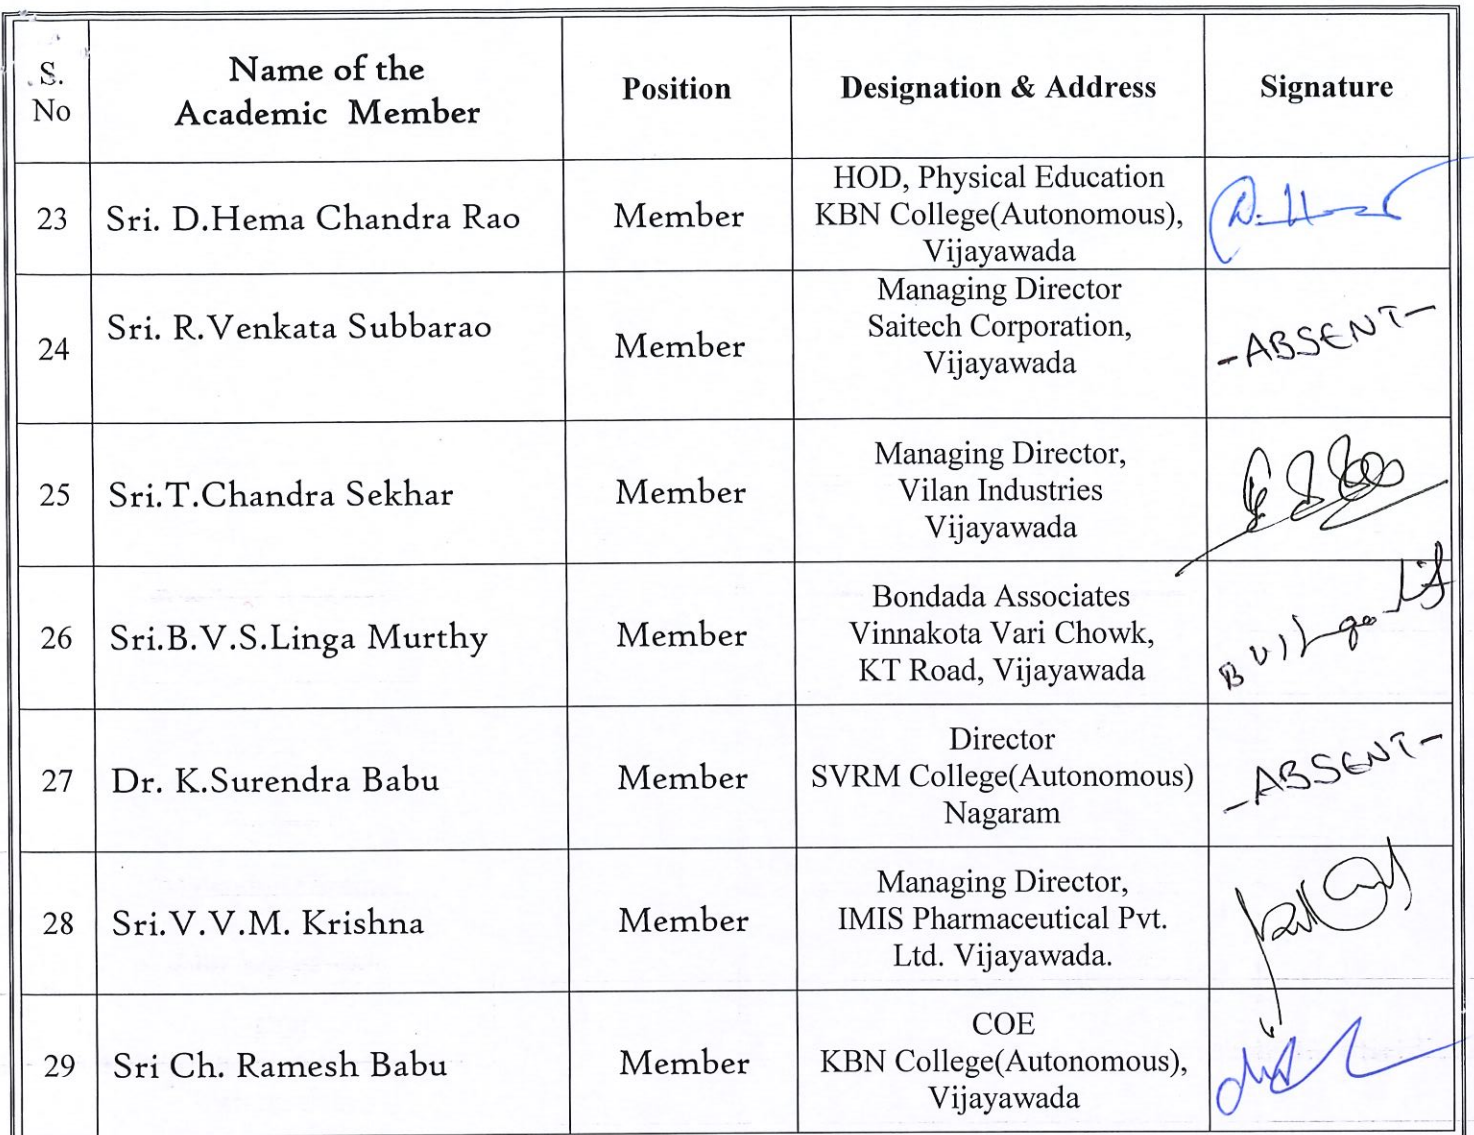 S.
No
Name of the
Academic Member
Position
Designation & Address
Signature
23
Sri. D.Hema Chandra Rao
Member
HOD, Physical Education
KBN College(Autonomous),
Vijayawada
24
Sri. R.Venkata Subbarao
Member
Managing Director
Saitech Corporation,
Vijayawada
-ABSENT-
25
Sri.T.Chandra Sekhar
Member
Managing Director,
Vilan Industries
Vijayawada
26
Sri.B.V.S.Linga Murthy
Member
Bondada Associates
Vinnakota Vari Chowk,
KT Road, Vijayawada
27
Dr. K.Surendra Babu
Member
Director
SVRM College(Autonomous)
Nagaram
-ABSENT-
28
Sri.V.V.M. Krishna
Member
Managing Director,
IMIS Pharmaceutical Pvt.
Ltd. Vijayawada.
29
Sri Ch. Ramesh Babu
Member
COE
KBN College(Autonomous),
Vijayawada